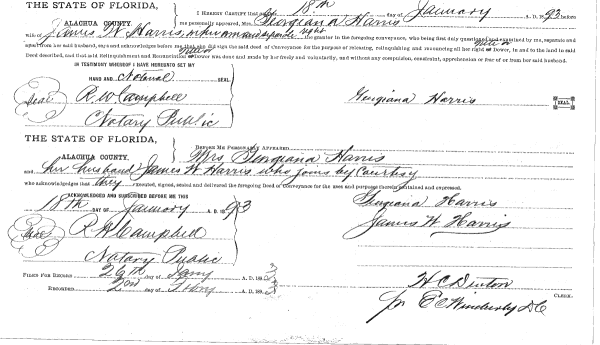 THE STATE OF FLORIDA,
ALACHUA COUNTY.
I HEREBY CERTIFY that on this 18th day of January A. D. 1893 before
me personally appeared, Mrs. Georgiana Harris
wife of James W. Harris, in her own and separate right the grantor in the foregoing conveyance, who being first duly examined by me, separate and
apart from her said husband, says and acknowledges before me that she did sign the said deed of Conveyance for the purpose of releasing, relinquishing and renouncing all her right of Dower, in and to the land in said
Deed described, and that said Relinquishment and Renunciation of Dower was done and made by her freely and voluntarily, and without any compulsion, constraint, apprehension or fear of or from her said husband.
IN TESTIMONY WHEREOF I HAVE HEREUNTO SET MY
HAND AND Notarial SEAL
Seal
R. W. Campbell
Notary Public
Georgiana Harris
SEAL
THE STATE OF FLORIDA,
ALACHUA COUNTY.
BEFORE ME PERSONALLY APPEARED
Mrs Georgiana Harris
and her husband James W Harris who joins by courtesy
who acknowledges that they executed, signed, sealed and delivered the foregoing Deed of Conveyance for the uses and purposes therein contained and expressed.
ACKNOWLEDGED AND SUBSCRIBED BEFORE ME THIS
18th DAY OF January A. D. 1893
Seal
R. W. Campbell
Notary Public
Georgiana Harris
James W Harris
FILED FOR RECORD 26th day of Jany A. D. 1893
RECORDED 2nd day of A. D. 1893
H C Denton
CLERK.
pr E C D C